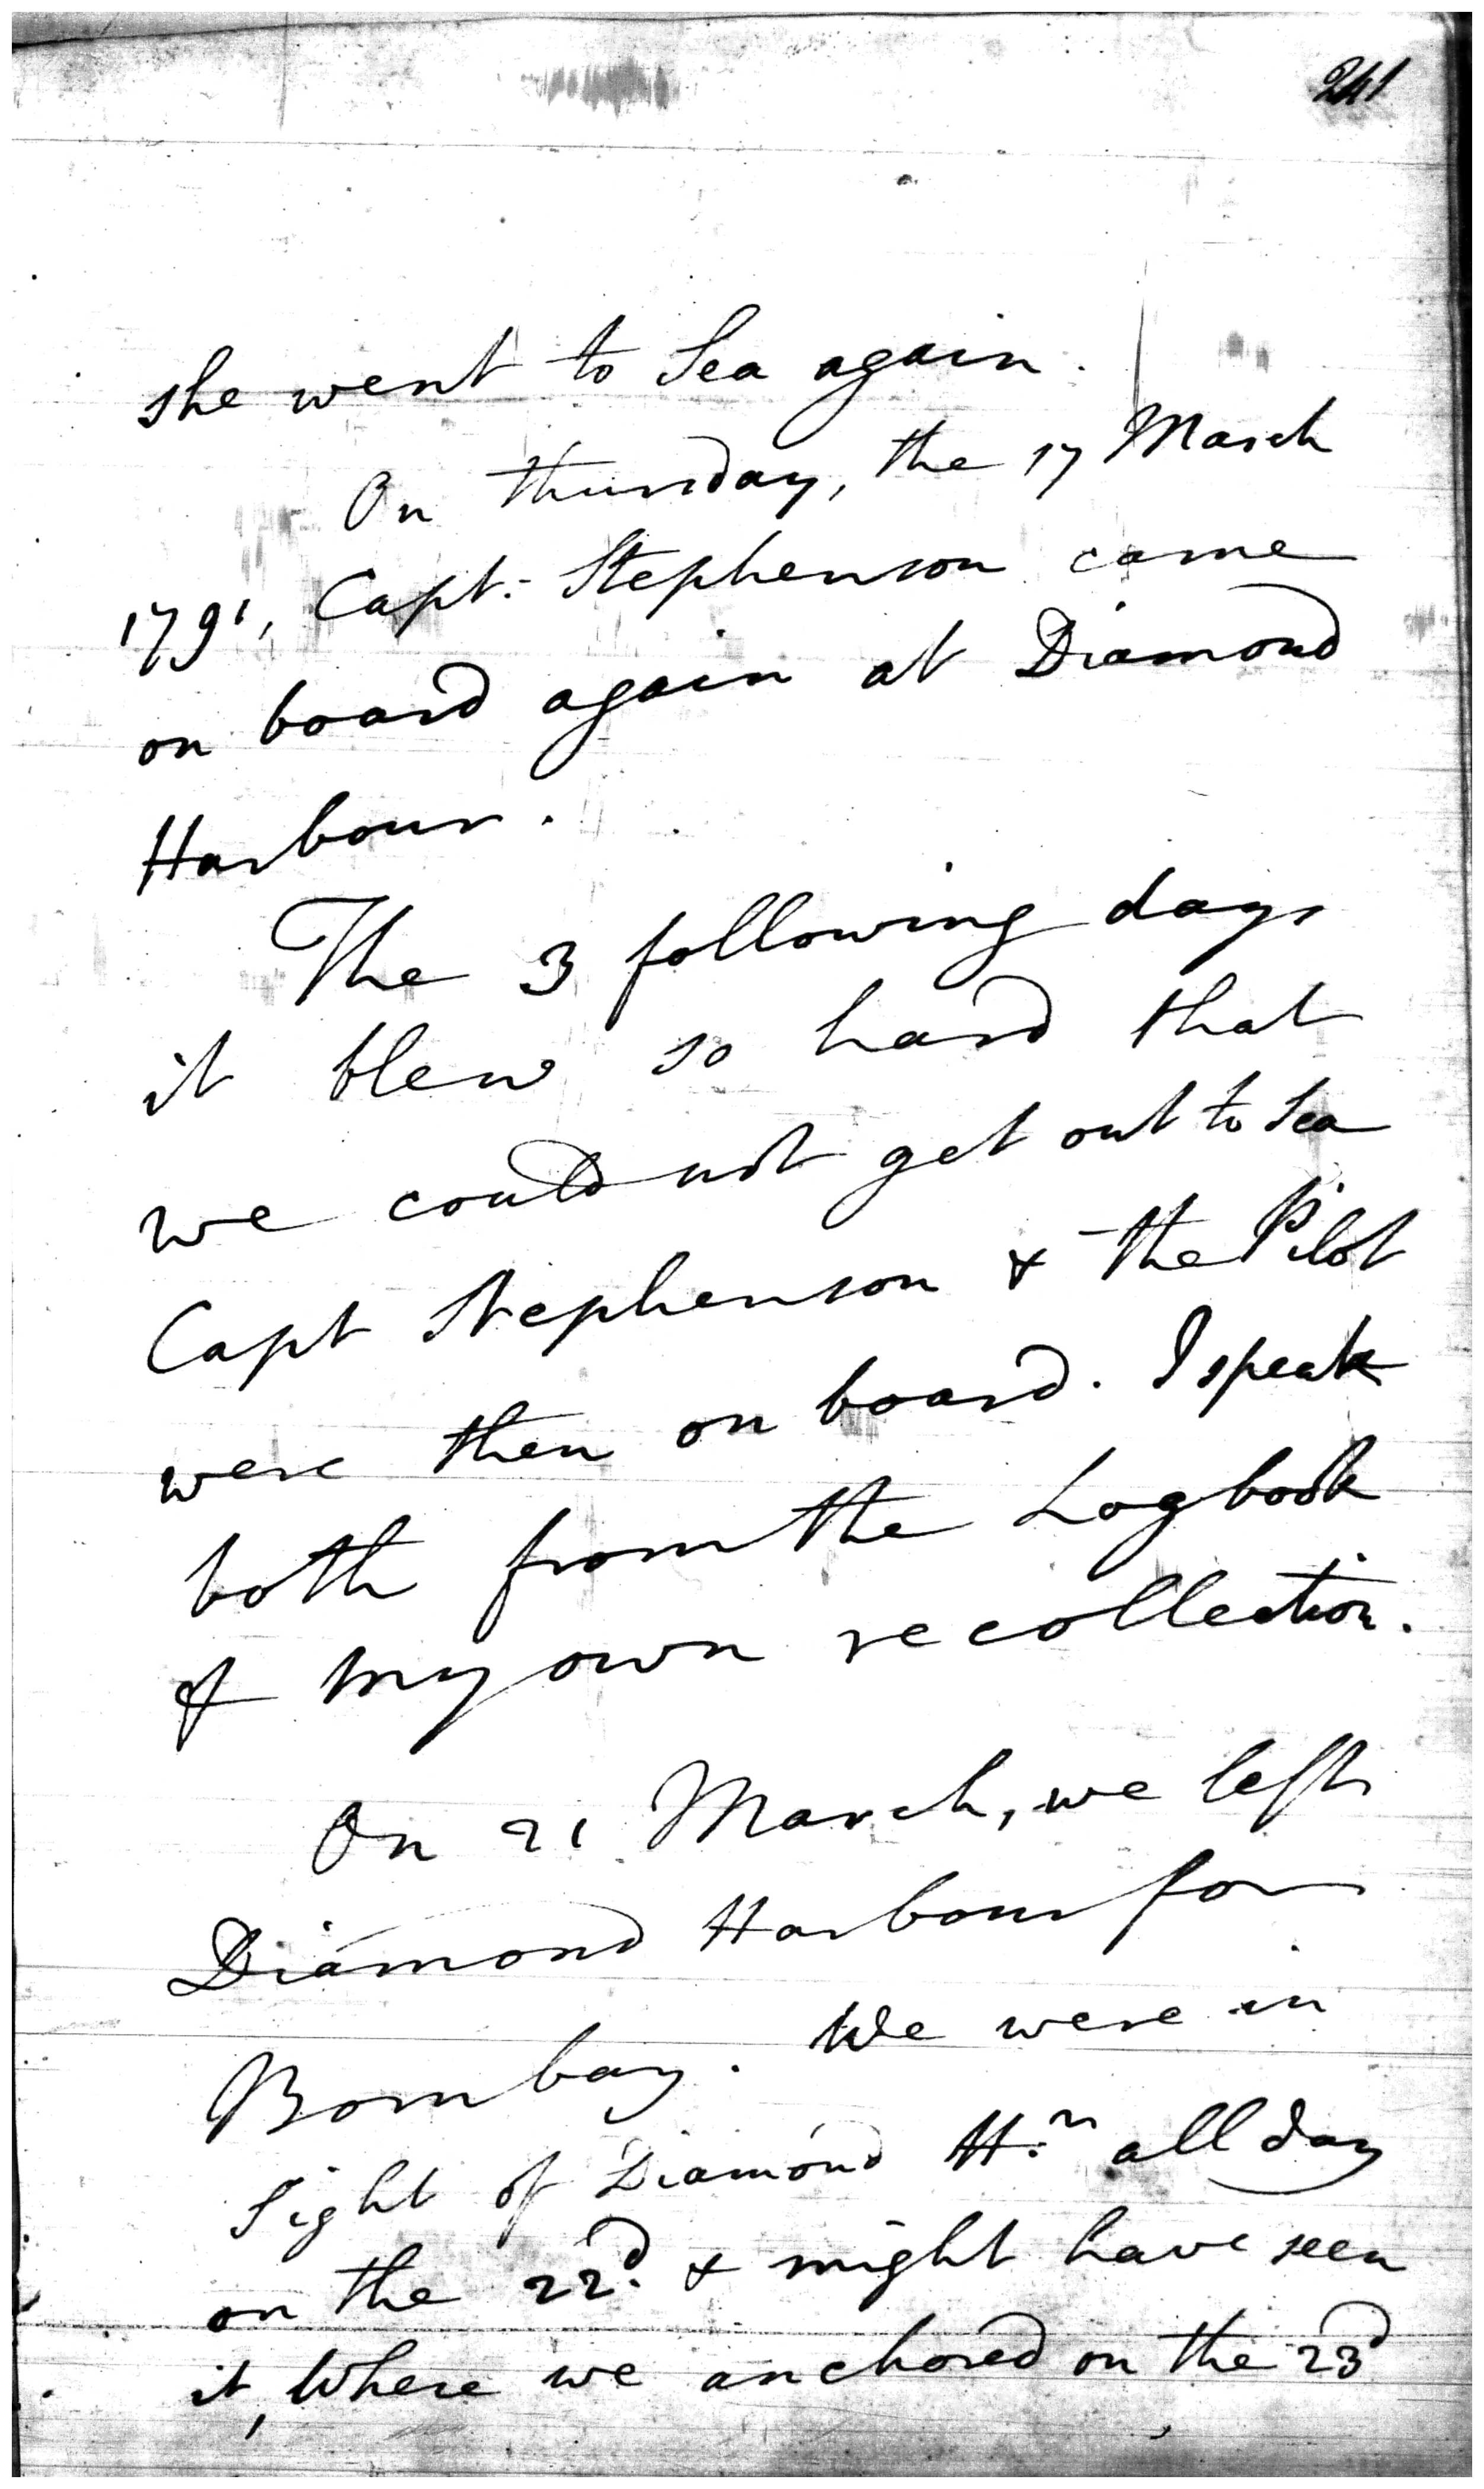 241
she went to Sea again.
On thursday, the 17 March
1791, Capt: Stephenson came
on board again at Diamond
Harbour.
The 3 following days
it blew so hard that
we could not get out to Sea
Capt Stephenson & the Pilot
were then on board. I speak
both from the Logbook
& my own recollection.
On 21 March, we left
Diamond Harbour for
Bombay. We were in
sight of Diamond H.r all day
on the 22d. & might have seen
it, Where we anchored on the 23d